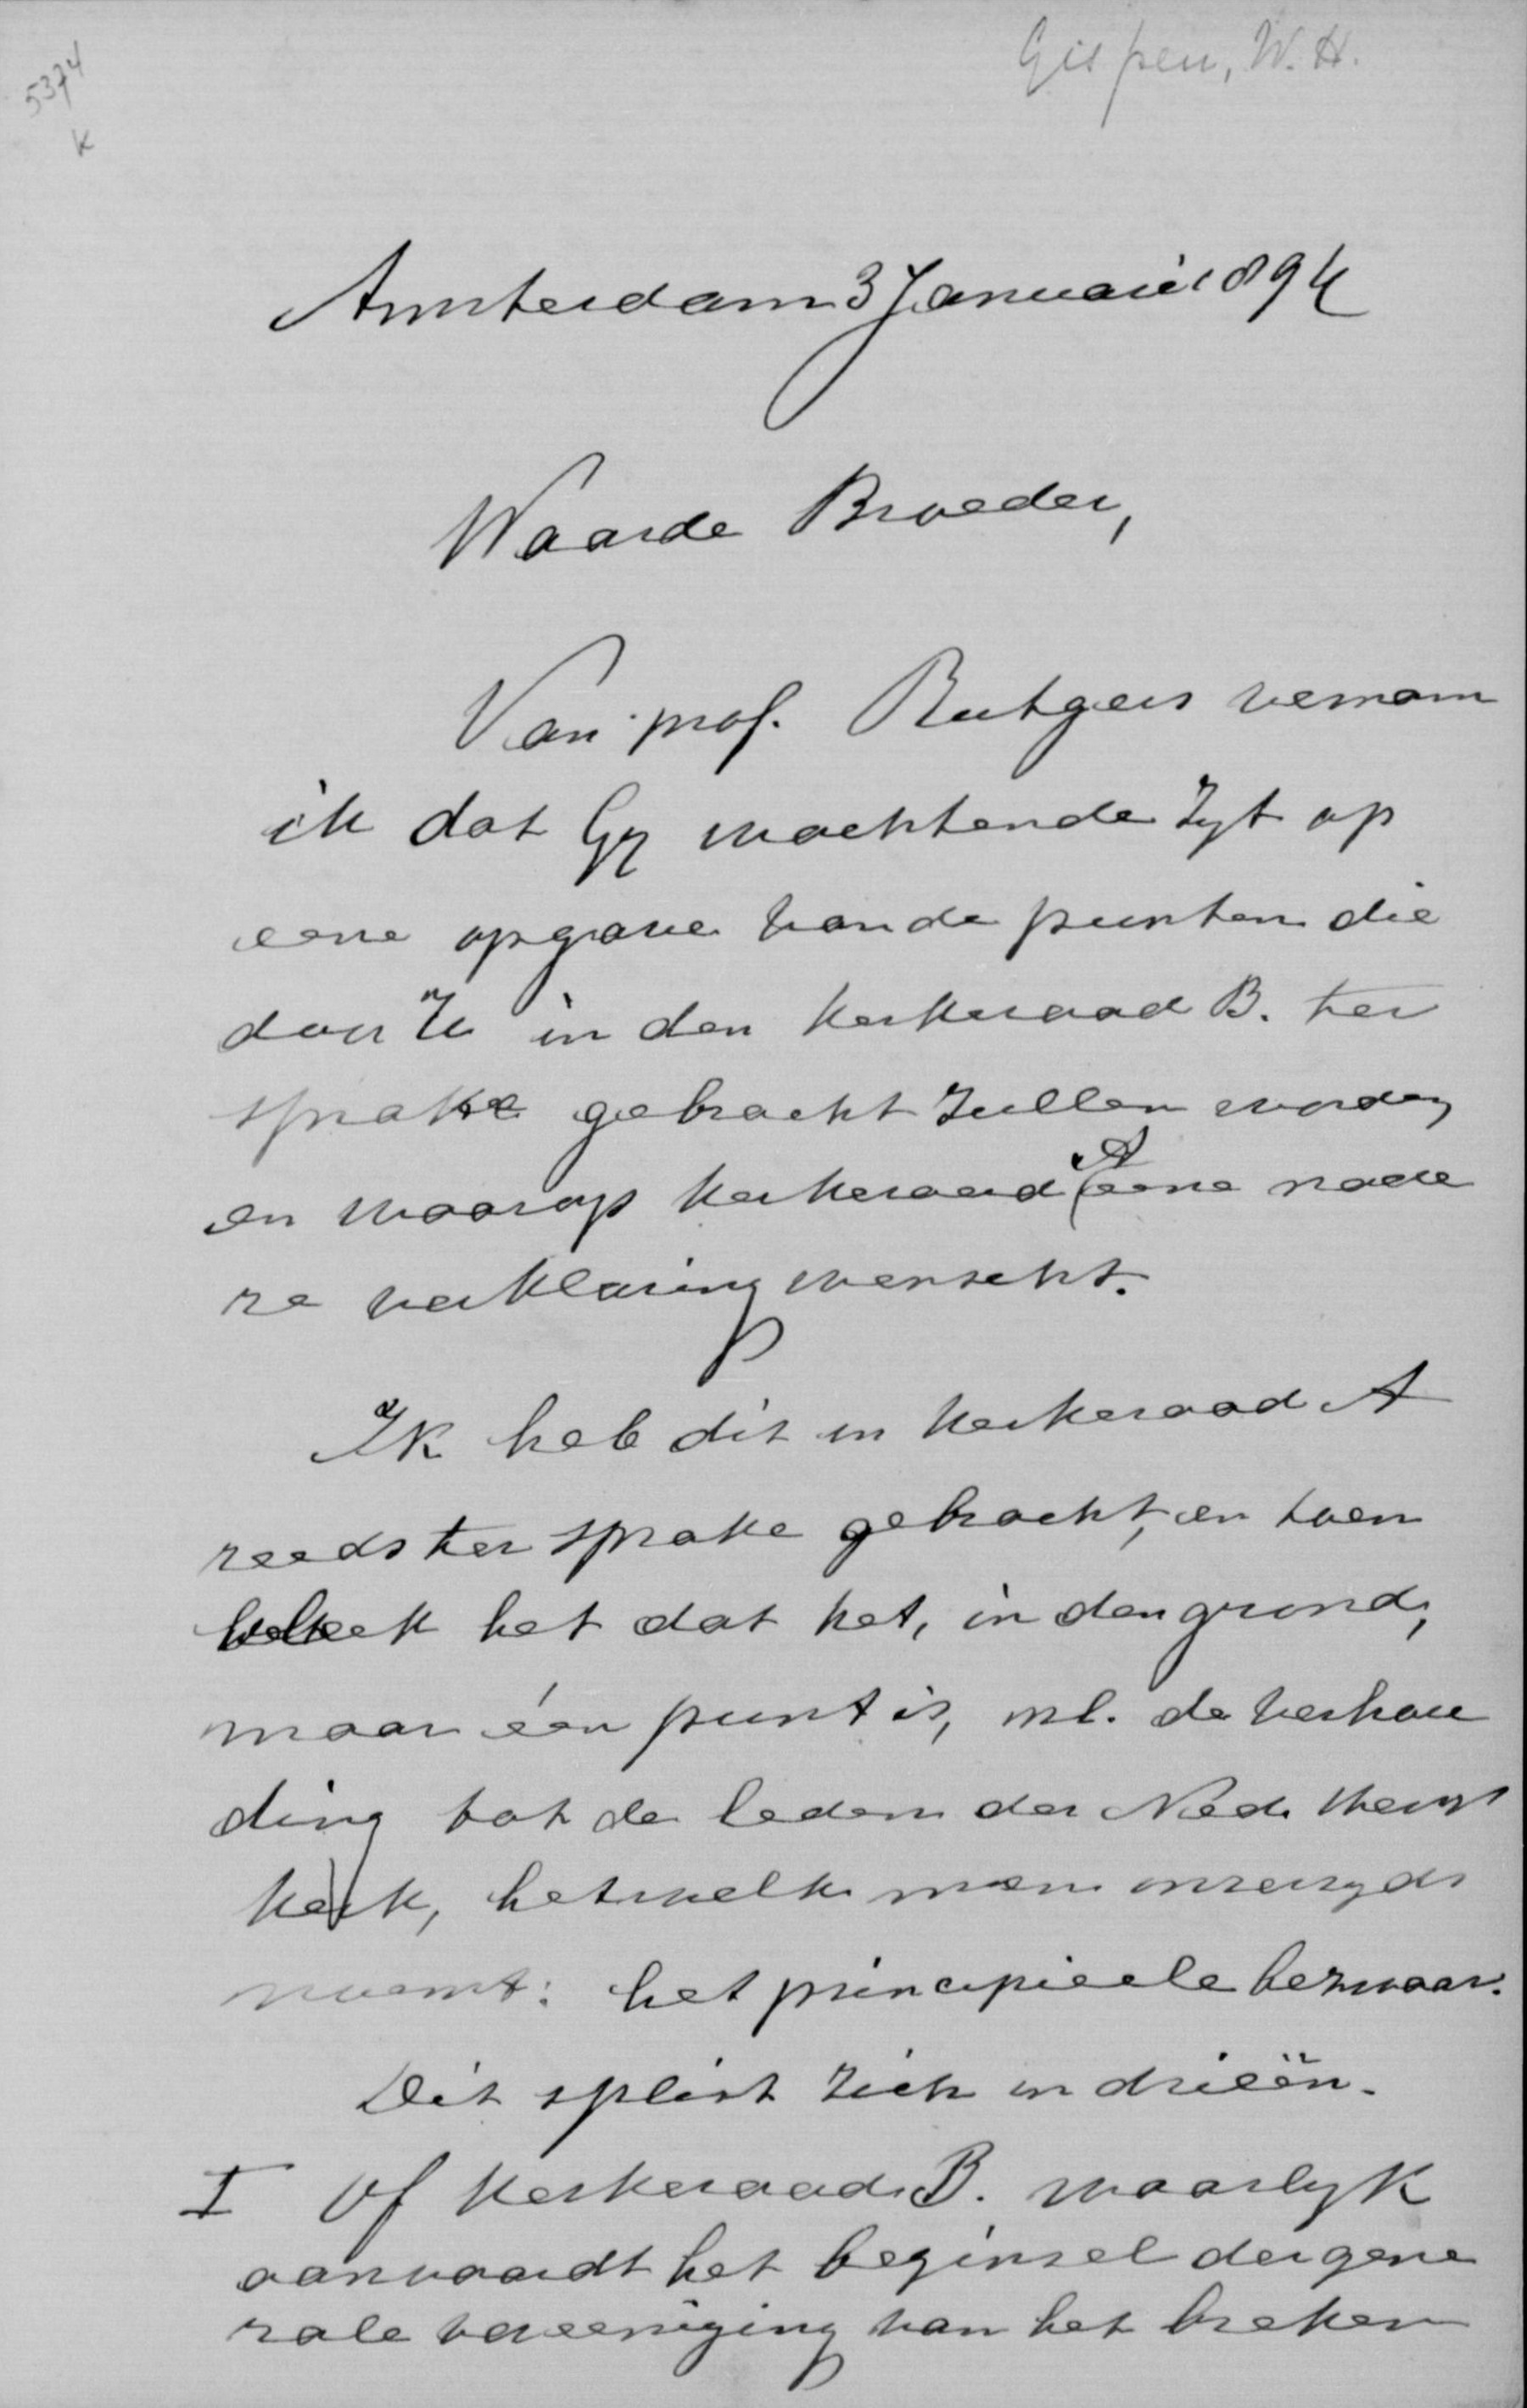 5374
K
Gispen, W. H.
Amsterdam 3 Januari 1894
Waarde Broeder,
Van prof. Rutgers vernam
ik dat Gy wachtende zyt op
eene opgave van de punten die
door U in den Kerkeraad B. ter
sprake gebracht zullen worden
en waarop Kerkeraad A eene nade
re verklaring wenscht.
Ik heb dit in Kerkeraad A
reeds ter sprake gebracht, en toen
bleek het dat het, in den grond,
maar één punt is, nl. de verhou
ding tot de leden der Ned. Herv.
kerk, hetwelk men onzerzyds
noemt: het principieele bezwaar.
Dit splist zich in drieën.
I Of Kerkeraad B. waarlyk
aanvaardt het beginsel der gene
rale vereeniging van het breken